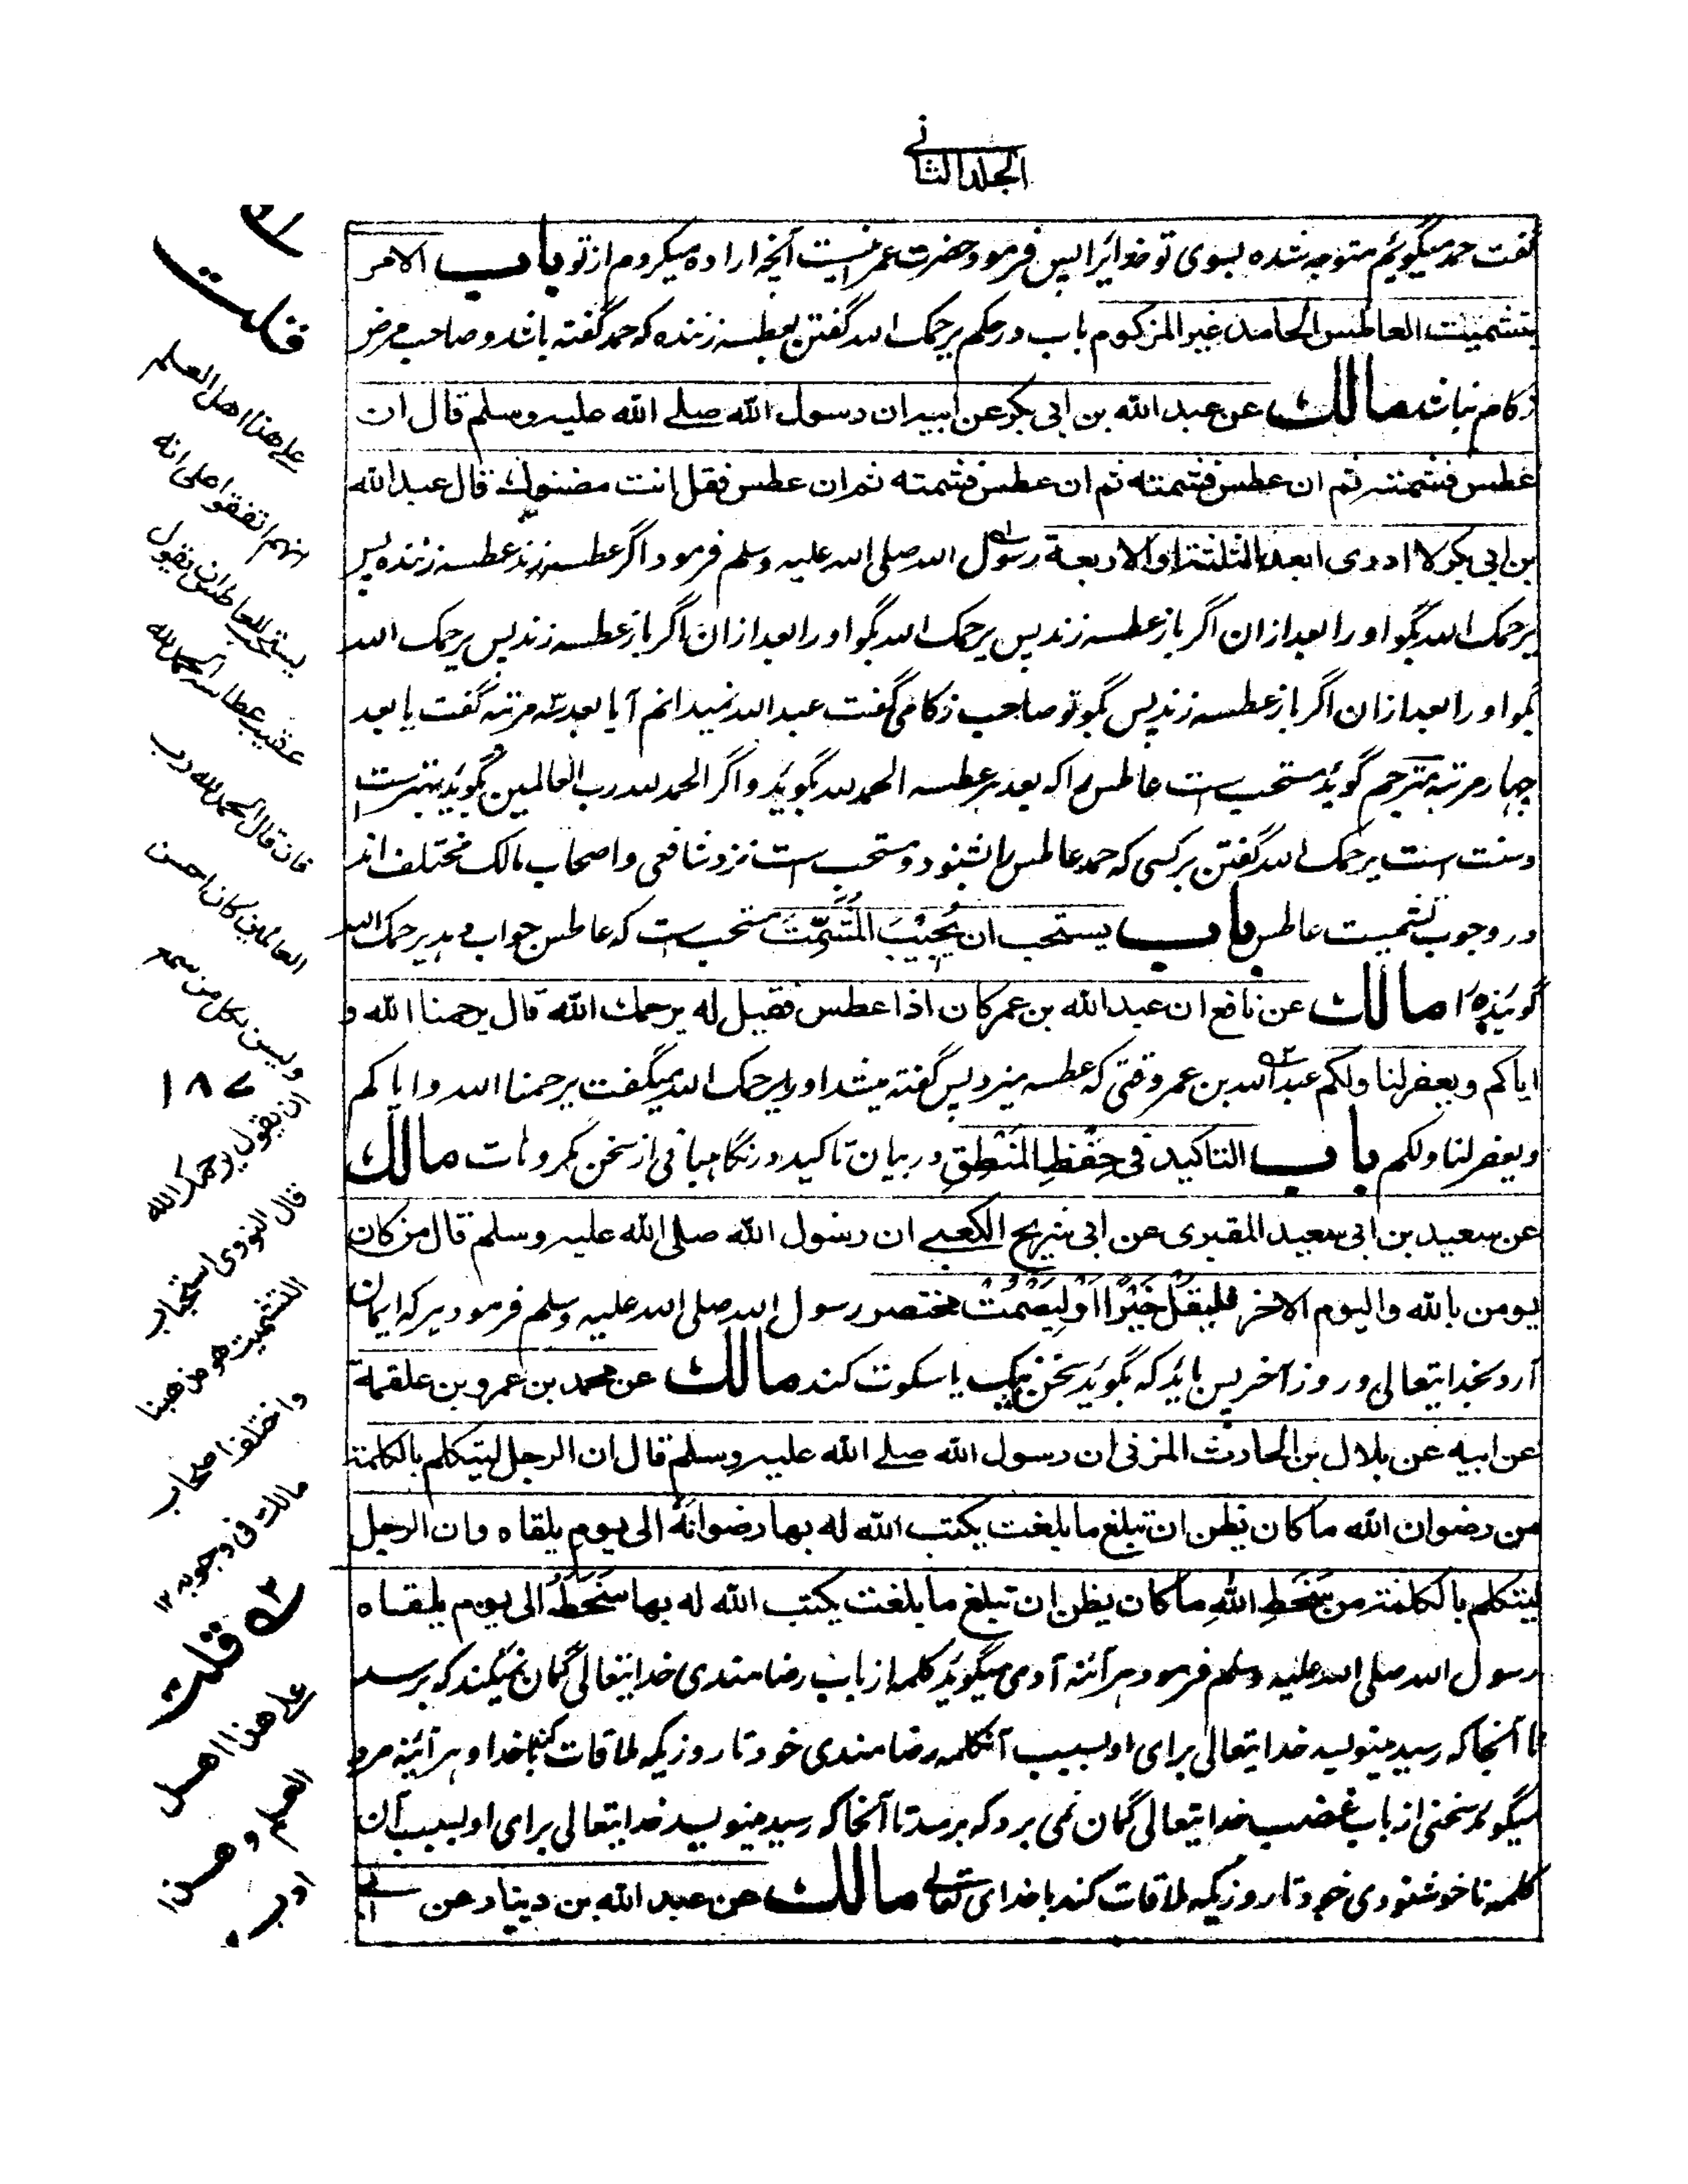 الجلد الثانی
گفت حمد میگویم متوجه شده بسوی تو خدایرا پس فرمود حضرت عمر اینست آنچه اراده میکردم از تو باب الامر
بتشمیت العاطس الحامد غیر المزکوم باب در حکم یرحمک الله گفتن بعطسه زننده که حمد گفته باشد و صاحب مرض
زکام نباشد مالك عن عبد الله بن ابی بکر عن ابیه ان رسول الله صلے الله علیه وسلم قال ان
عطس فشمته ثم ان عطس فشمته ثم ان عطس فشمته ثم ان عطس فقل انت مضنوك قال عبد الله
بن ابی بکر لا ادری ابعد الثلثة او الاربعة رسول الله صلی الله علیه وسلم فرمود اگر عطسه زند عطسه زننده پس
یرحمک الله بگو او را بعد ازان اگر باز عطسه زند پس یرحمک الله بگو او را بعد ازان اگر باز عطسه زند پس یرحمک الله
بگو او را بعد ازان اگر باز عطسه زند پس بگو تو صاحب زکامی گفت عبد الله نمیدانم آیا بعد سه مرتبه گفت یا بعد
چهار مرتبه مترجم گوید مستحب ست عاطس را که بعد هر عطسه الحمد لله بگوید و اگر الحمد لله رب العالمین بگوید بهترست
و سنت است یرحمک الله گفتن بر کسی که حمد عاطس را بشنود و مستحب ست نزد شافعی و اصحاب مالک مختلف اند
در وجوب تشمیت عاطس باب یستحب ان یُجِیْبَ الْمُشَمِّتَ مستحب ست که عاطس جواب دهد یرحمک الله
گوینده را مالك عن نافع ان عبد الله بن عمر کان اذا عطس فقیل له یرحمك الله قال یرحمنا الله و
ایاکم ویغفر لنا ولکم عبد الله بن عمر وقتی که عطسه میزد پس گفته میشد او را یرحمک الله میگفت یرحمنا الله وایاکم
ویغفر لنا ولکم باب التاکید فی حِفْظِ الْمَنْطِقِ در بیان تاکید در نگاهبانی از سخن مکروهات مالك
عن سعید بن ابی سعید المقبری عن ابی شریح الکعبے ان رسول الله صلی الله علیه وسلم قال من کان
یومن بالله والیوم الاخر فلیقُلْ خَیْرًا اَوْ لِیَصْمُتْ مختصر رسول الله صلی الله علیه وسلم فرمود هر که ایمان
آرد بخدایتعالی و روز آخر پس باید که بگوید سخن نیک یا سکوت کند مالك عن محمد بن عمرو بن علقمة
عن ابیه عن بلال بن الحارث المزنی ان رسول الله صلے الله علیه وسلم قال ان الرجل لیتکلم بالکلمة
من رضوان الله ما کان یظن ان تبلغ ما بلغت یکتب الله له بها رضوانَهُ الی یوم یلقاه وان الرجل
لیتکلم بالکلمة من سَخَطِ اللهِ ما کان یظن ان تبلغ ما بلغت یکتب الله له بها سَخَطَهُ الی یوم یلقاه
رسول الله صلی الله علیه وسلم فرمود هر آئنه آدمی میگوید کلمه از باب رضامندی خدایتعالی گمان نمیکند که برسد
تا آنجا که رسید مینویسد خدایتعالی برای او بسبب آنکلمه رضامندی خود تا روزیکه ملاقات کند با خدا و هر آئنه مرد
میگوید سخنی از باب غضب خدایتعالی گمان نمی برد که برسد تا آنجا که رسید مینویسد خدایتعالی برای او بسبب آن
کلمه ناخوشنودی خود تا روزیکه ملاقات کند با خدای تعالی مالك عن عبد الله بن دینار عن ابی
قلت
علے هذا اهل العلم
انهم اتفقوا علی انه
یستحب للعاطس ان یقول
عقیب عطاسه الحمد لله
فان قال الحمد لله رب
العالمین کان احسن
ولیس لکل من سمعه
۱۸۷
ان یقول یرحمك الله
قال النووی استحباب
التشمیت هو مذهبنا
واختلف اصحاب
مالك فی وجوبه ۱۲
قلت
علی هذا اهل
العلم و هذا
ادب